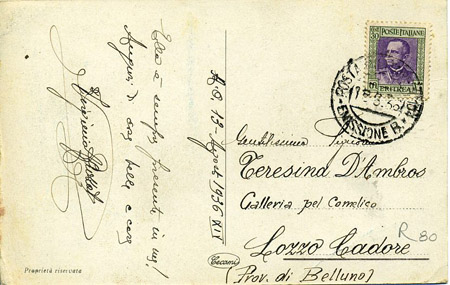 Ella è sempre presente in me!
Auguri di cose belle e care
A.O. 13-Agosto 1936 XIV
POSTE ITALIANE
ERITREA
POSTA
EMISSIONE B.
Gentilissima Signora
Teresina D'Ambros
Galleria pel Comelico
Lozzo Cadore
(Prov. di Belluno)
R 80
Cecami
Proprietà riservata